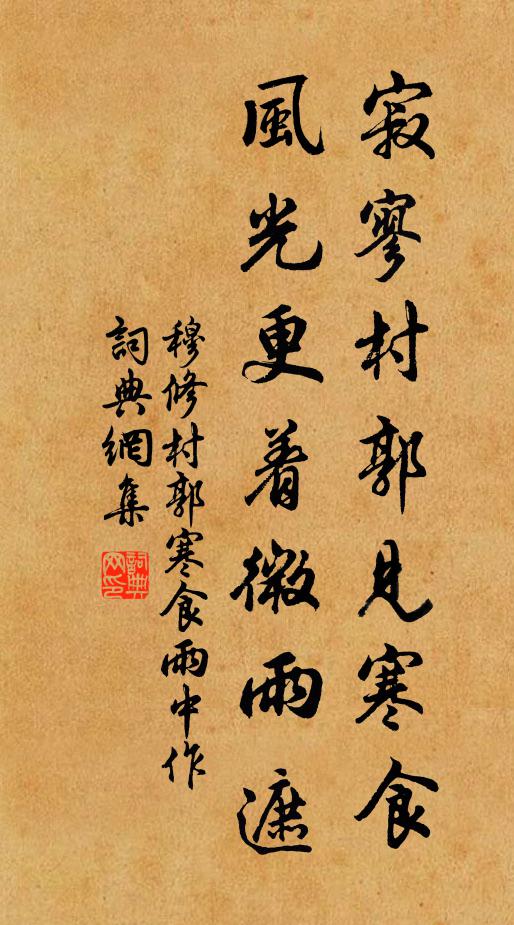 寂寥村郭見寒食
風光更着微雨遮
穆修村郭寒食雨中作
詞典網集
詞典網印